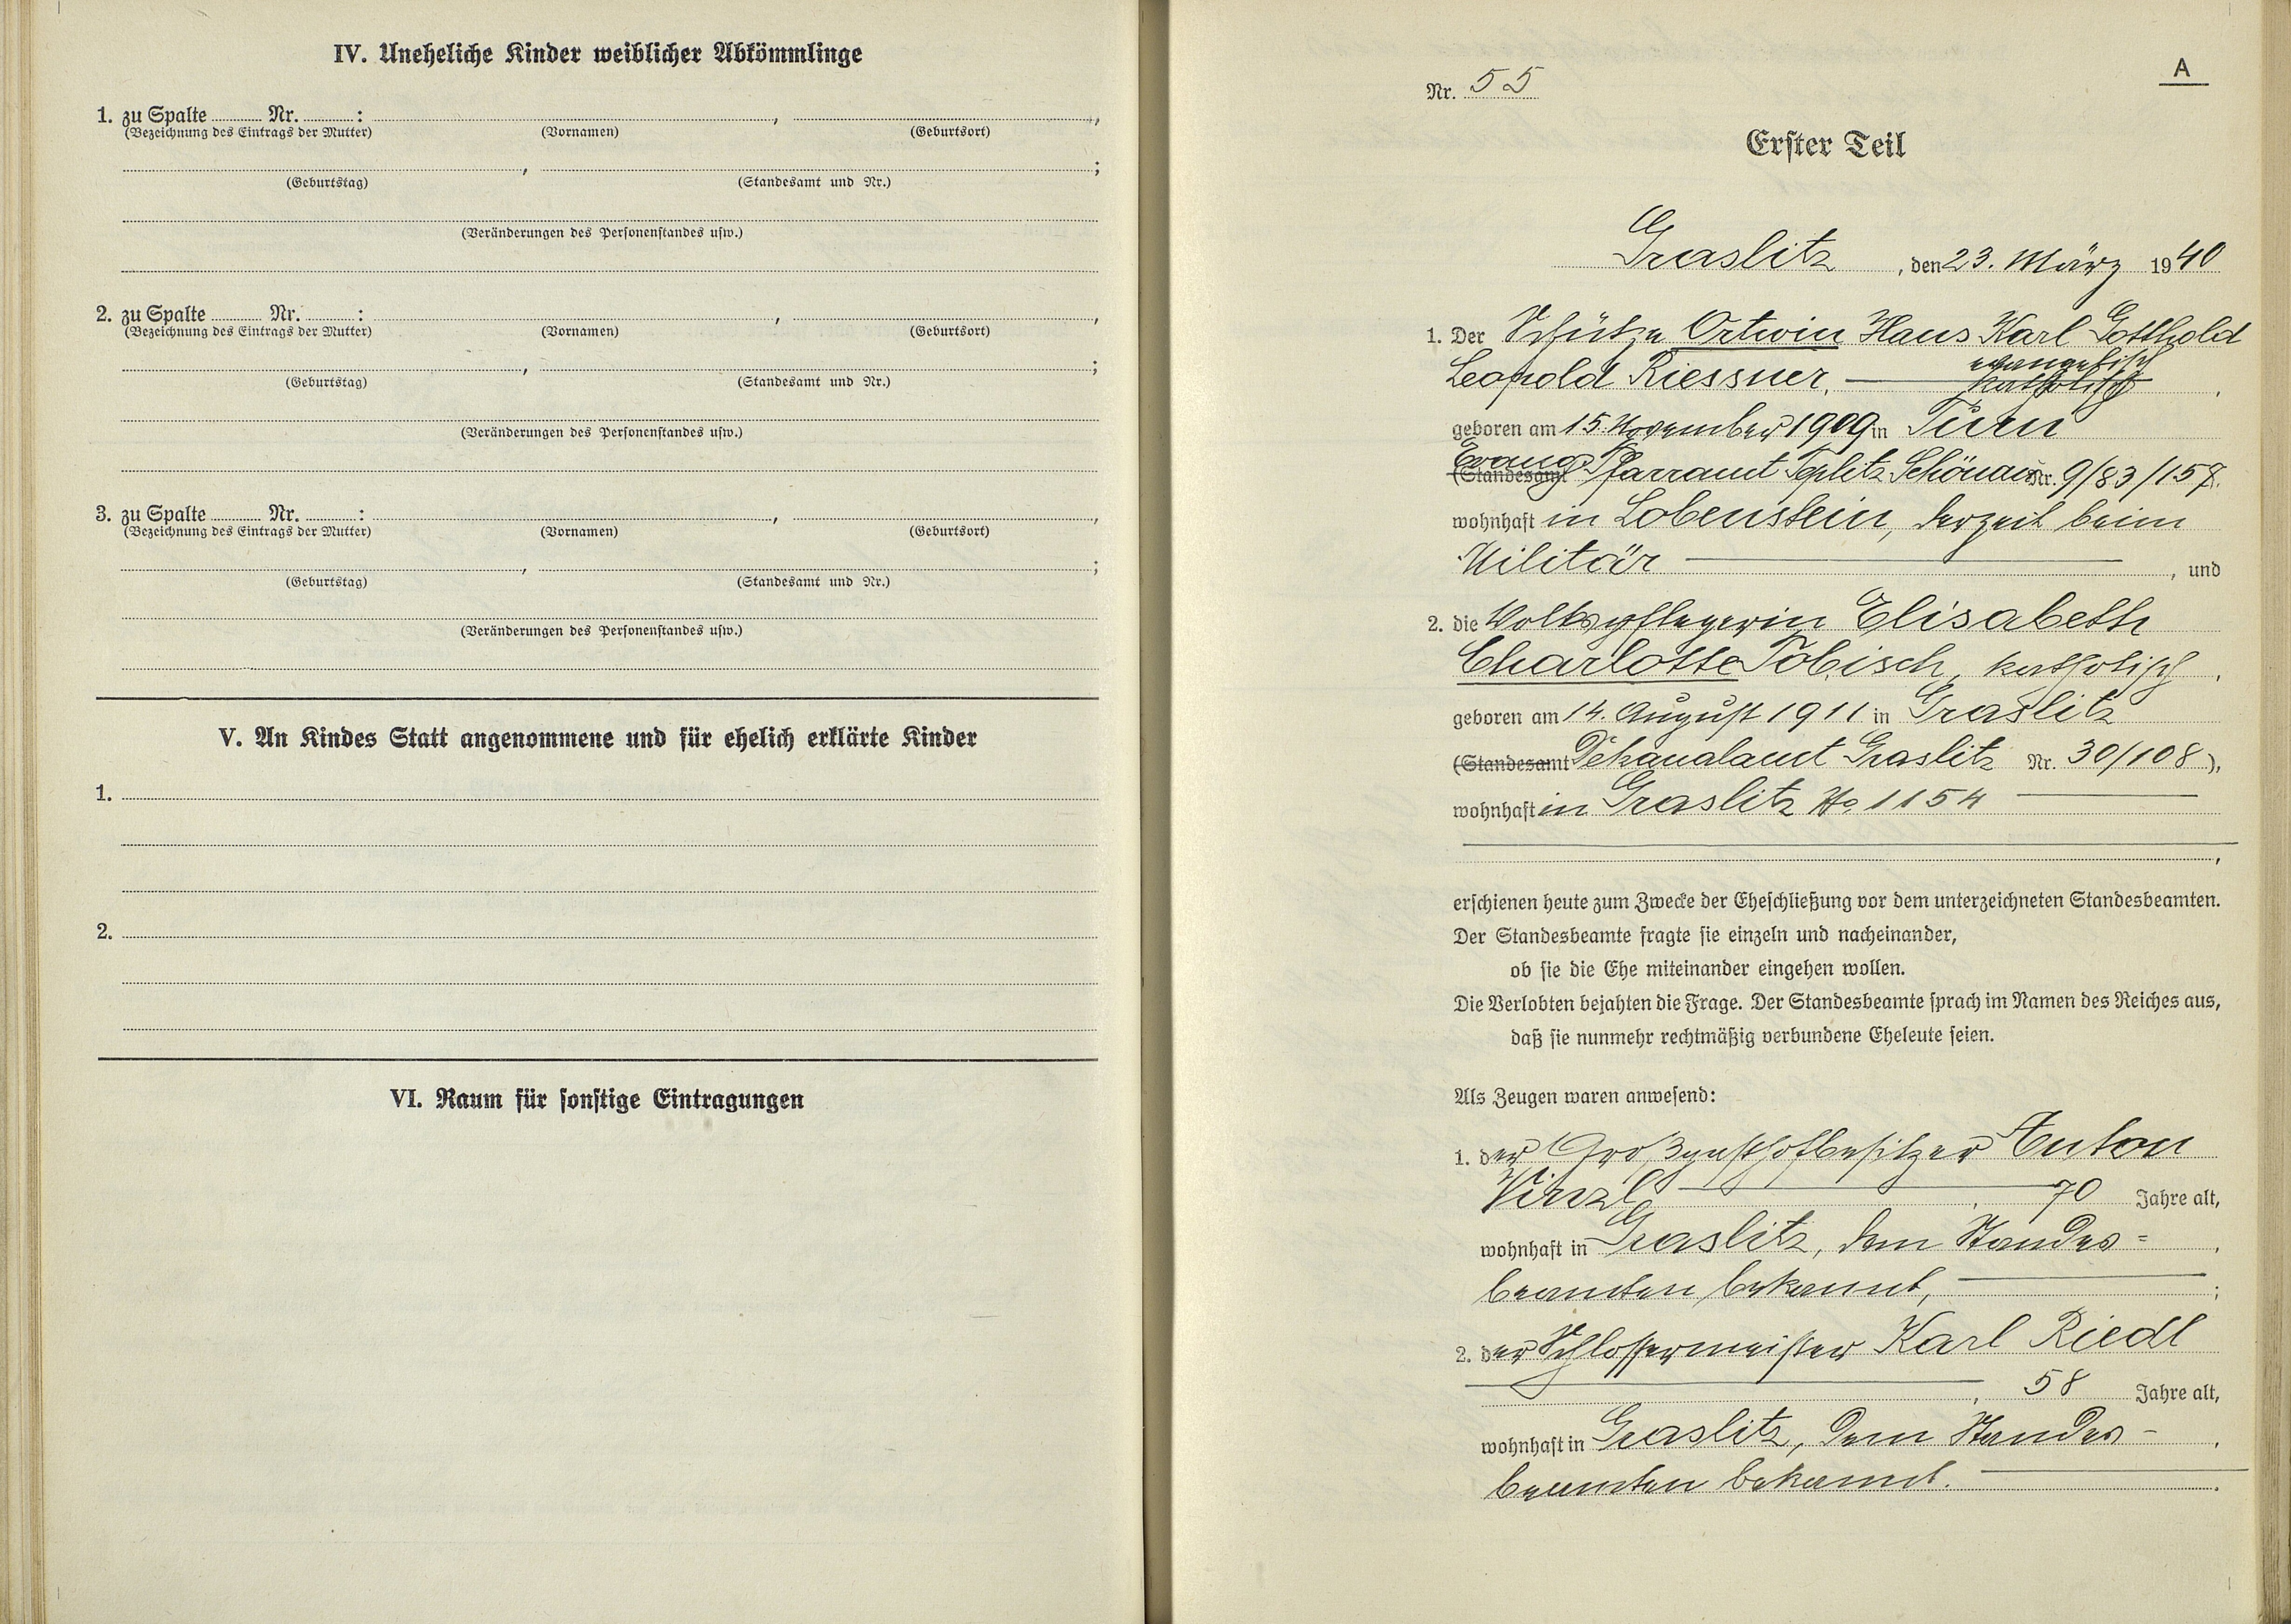 IV. Uneheliche Kinder weiblicher Abkömmlinge
1. zu Spalte ........ Nr. ........ : ........, ........,
(Bezeichnung des Eintrags der Mutter) (Vornamen) (Geburtsort)
........, ........;
(Geburtstag) (Standesamt und Nr.)
(Veränderungen des Personenstandes usw.)
2. zu Spalte ........ Nr. ........ : ........, ........,
(Bezeichnung des Eintrags der Mutter) (Vornamen) (Geburtsort)
........, ........;
(Geburtstag) (Standesamt und Nr.)
(Veränderungen des Personenstandes usw.)
3. zu Spalte ........ Nr. ........ : ........, ........,
(Bezeichnung des Eintrags der Mutter) (Vornamen) (Geburtsort)
........, ........;
(Geburtstag) (Standesamt und Nr.)
(Veränderungen des Personenstandes usw.)
V. An Kindes Statt angenommene und für ehelich erklärte Kinder
1.
2.
VI. Raum für sonstige Eintragungen
A
Nr. 55
Erster Teil
Graslitz, den 23. März 1940
1. Der Schütze Ortwin Hans Karl Gotthold
evangelisch
Leopold Riessner, katholisch,
geboren am 15. November 1909 in Turn
(Standesamt Evang. Pfarramt Teplitz Schönau Nr. 9/83/157.
wohnhaft in Lobenstein, derzeit beim
Militär, und
2. die Volkspflegerin Elisabeth
Charlotte Tobisch, katholisch,
geboren am 14. August 1911 in Graslitz
(Standesamt Dekanalamt Graslitz Nr. 30/108),
wohnhaft in Graslitz No 1154
,
erschienen heute zum Zwecke der Eheschließung vor dem unterzeichneten Standesbeamten.
Der Standesbeamte fragte sie einzeln und nacheinander,
ob sie die Ehe miteinander eingehen wollen.
Die Verlobten bejahten die Frage. Der Standesbeamte sprach im Namen des Reiches aus,
daß sie nunmehr rechtmäßig verbundene Eheleute seien.
Als Zeugen waren anwesend:
1. der Großgasthofbesitzer Anton
70 Jahre alt,
wohnhaft in Graslitz, dem Standes=
beamten bekannt,;
2. der Schlossermeister Karl Riedl
, 58 Jahre alt,
wohnhaft in Graslitz, dem Standes-
beamten bekannt.